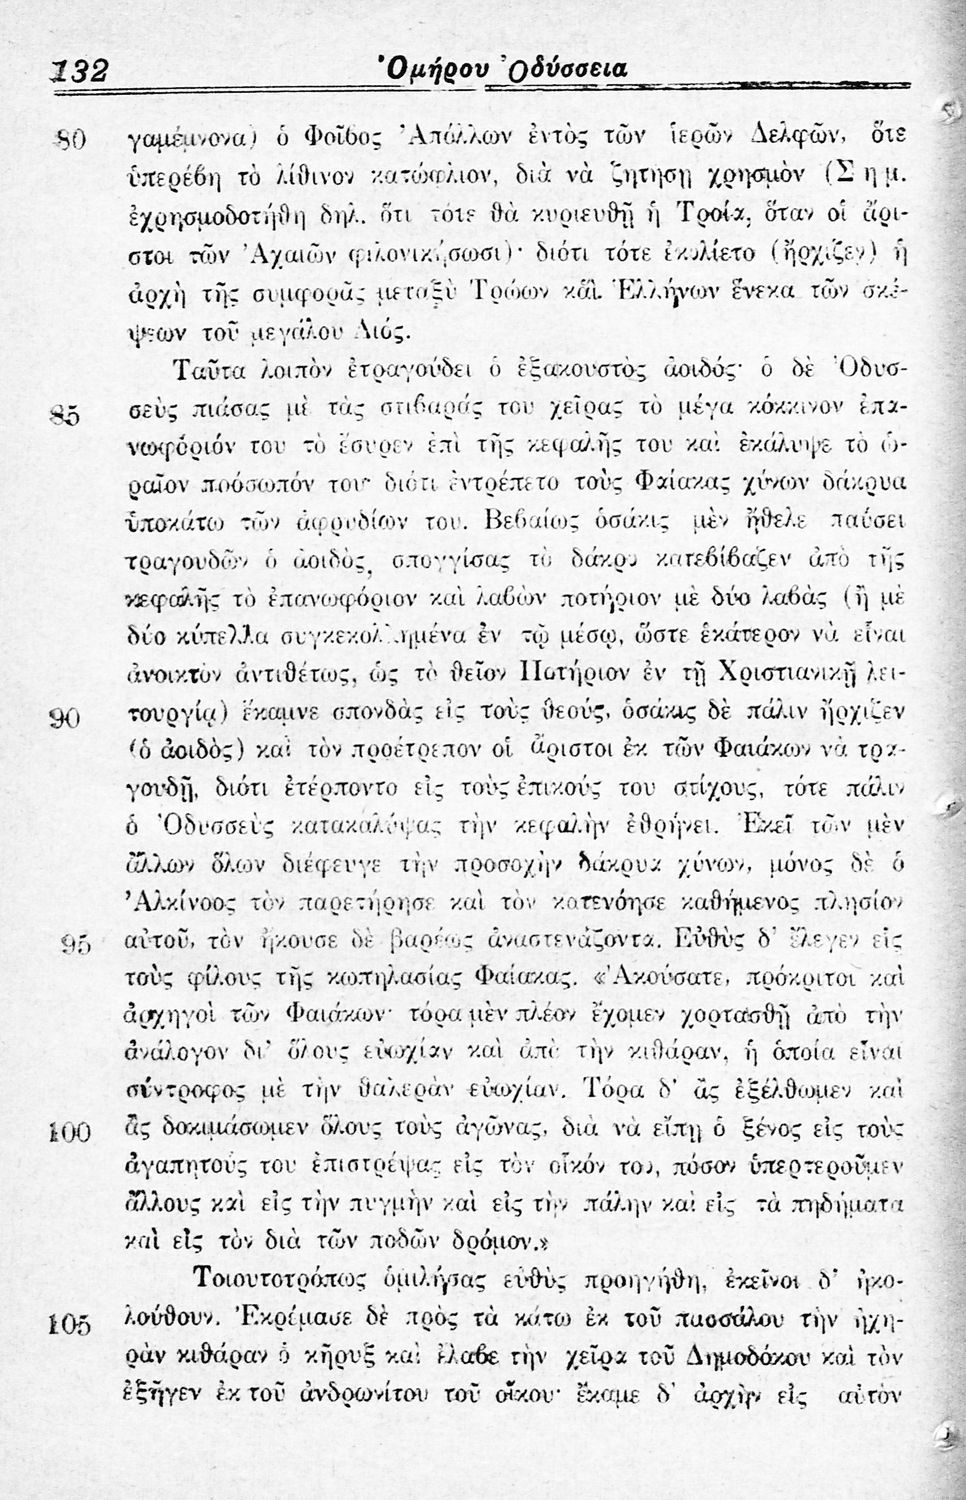 132 Ὁμήρου Ὀδύσσεια
80 γαμέμνονα) ὁ Φοῖβος Ἀπόλλων ἐντὸς τῶν ἱερῶν Δελφῶν, ὅτε
ὑπερέβη τὸ λίθινον κατώφλιον, διὰ νὰ ζητήσῃ χρησμὸν (Σημ.
ἐχρησμοδοτήθη δηλ. ὅτι τότε θὰ κυριευθῇ ἡ Τροία, ὅταν οἱ ἄρι-
στοι τῶν Ἀχαιῶν φιλονικήσωσι)· διότι τότε ἐκυλίετο (ἤρχιζεν) ἡ
ἀρχὴ τῆς συμφορᾶς μεταξὺ Τρώων καὶ Ἑλλήνων ἕνεκα τῶν σκέ-
ψεων τοῦ μεγάλου Διός.
Ταῦτα λοιπὸν ἐτραγούδει ὁ ἐξακουστὸς ἀοιδός· ὁ δὲ Ὀδυσ-
85 σεὺς πιάσας μὲ τὰς στιβαράς του χεῖρας τὸ μέγα κόκκινον ἐπα-
νωφόριόν του τὸ ἔσυρεν ἐπὶ τῆς κεφαλῆς του καὶ ἐκάλυψε τὸ ὡ-
ραῖον πρόσωπόν του· διότι ἐντρέπετο τοὺς Φαίακας χύνων δάκρυα
ὑποκάτω τῶν ὀφρυδίων του. Βεβαίως ὁσάκις μὲν ἤθελε παύσει
τραγουδῶν ὁ ἀοιδὸς, σπογγίσας τὸ δάκρυ κατεβίβαζεν ἀπὸ τῆς
κεφαλῆς τὸ ἐπανωφόριον καὶ λαβὼν ποτήριον μὲ δύο λαβὰς (ἢ μὲ
δύο κύπελλα συγκεκολλημένα ἐν τῷ μέσῳ, ὥστε ἑκάτερον νὰ εἶναι
ἀνοικτὸν ἀντιθέτως, ὡς τὸ θεῖον Ποτήριον ἐν τῇ Χριστιανικῇ λει-
90 τουργίᾳ) ἔκαμνε σπονδὰς εἰς τοὺς θεούς, ὁσάκις δὲ πάλιν ἤρχιζεν
(ὁ ἀοιδὸς) καὶ τὸν προέτρεπον οἱ ἄριστοι ἐκ τῶν Φαιάκων νὰ τρα-
γουδῇ, διότι ἐτέρποντο εἰς τοὺς ἐπικούς του στίχους, τότε πάλιν
ὁ Ὀδυσσεὺς κατακαλύψας τὴν κεφαλὴν ἐθρήνει. Ἐκεῖ τῶν μὲν
ἄλλων ὅλων διέφευγε τὴν προσοχὴν δάκρυα χύνων, μόνος δὲ ὁ
Ἀλκίνοος τὸν παρετήρησε καὶ τὸν κατενόησε καθήμενος πλησίον
95 αὐτοῦ, τὸν ἤκουσε δὲ βαρέως ἀναστενάζοντα. Εὐθὺς δ' ἔλεγεν εἰς
τοὺς φίλους τῆς κωπηλασίας Φαίακας. «Ἀκούσατε, πρόκριτοι καὶ
ἀρχηγοὶ τῶν Φαιάκων· τόρα μὲν πλέον ἔχομεν χορτασθῇ ἀπὸ τὴν
ἀνάλογον δι' ὅλους εὐωχίαν καὶ ἀπὸ τὴν κιθάραν, ἡ ὁποία εἶναι
σύντροφος μὲ τὴν θαλερὰν εὐωχίαν. Τόρα δ' ἂς ἐξέλθωμεν καὶ
100 ἂς δοκιμάσωμεν ὅλους τοὺς ἀγῶνας, διὰ νὰ εἴπῃ ὁ ξένος εἰς τοὺς
ἀγαπητούς του ἐπιστρέψας εἰς τὸν οἶκόν του, πόσον ὑπερτεροῦμεν
ἄλλους καὶ εἰς τὴν πυγμὴν καὶ εἰς τὴν πάλην καὶ εἰς τὰ πηδήματα
καὶ εἰς τὸν διὰ τῶν ποδῶν δρόμον.»
Τοιουτοτρόπως ὁμιλήσας εὐθὺς προηγήθη, ἐκεῖνοι δ' ἠκο-
105 λούθουν. Ἐκρέμασε δὲ πρὸς τὰ κάτω ἐκ τοῦ πασσάλου τὴν ἠχη-
ρὰν κιθάραν ὁ κῆρυξ καὶ ἔλαβε τὴν χεῖρα τοῦ Δημοδόκου καὶ τὸν
ἐξῆγεν ἐκ τοῦ ἀνδρωνίτου τοῦ οἴκου· ἔκαμε δ' ἀρχὴν εἰς αὐτὸν